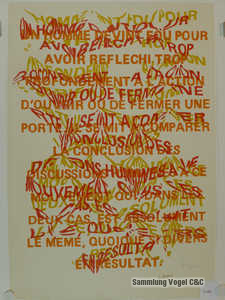 UN HOMME DEVINT FOU POUR
AVOIR REFLECHI TROP
PROFONDEMENT A L'ACTION
D'OUVRIR OU DE FERMER UNE
PORTE. IL SE MIT A COMPARER
LA CONCLUSION DES
DISCUSSIONS HUMAINES A CE
MOUVEMENT QUI, DANS LES
DEUX CAS, EST ABSOLUMENT
LE MEME, QUOIQUE SI DIVERS
EN RESULTAT.
Sammlung Vogel C&C